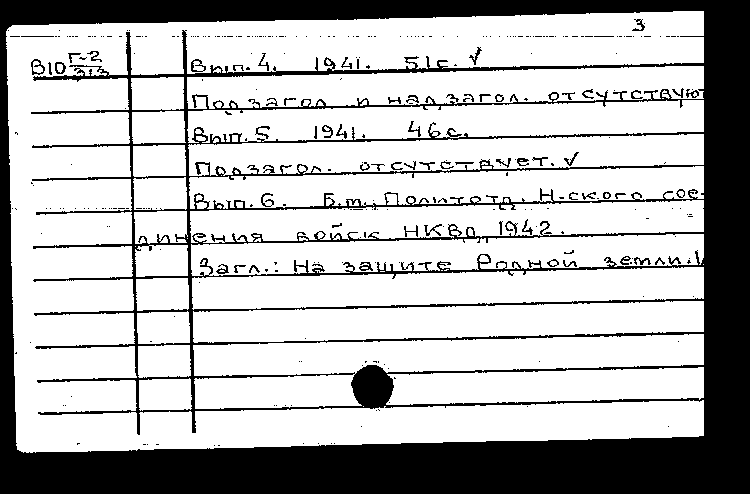 3
В10 Г-2/313 Вып. 4. 1941. 51с. ✓
Подзагол и надзагол. отсутствуют
Вып. 5. 1941. 46с.
Подзагол. отсутствует. ✓
Вып. 6. Б.м., Политотд. Н-ского сое-
динения войск НКВД, 1942.
Загл.: На защите Родной земли.